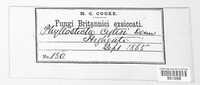 M. C. COOKE.
Fungi Britannici exsiccati.
Phyllosticta Cytisi Desm
Highgate
Sept 1865
No 150